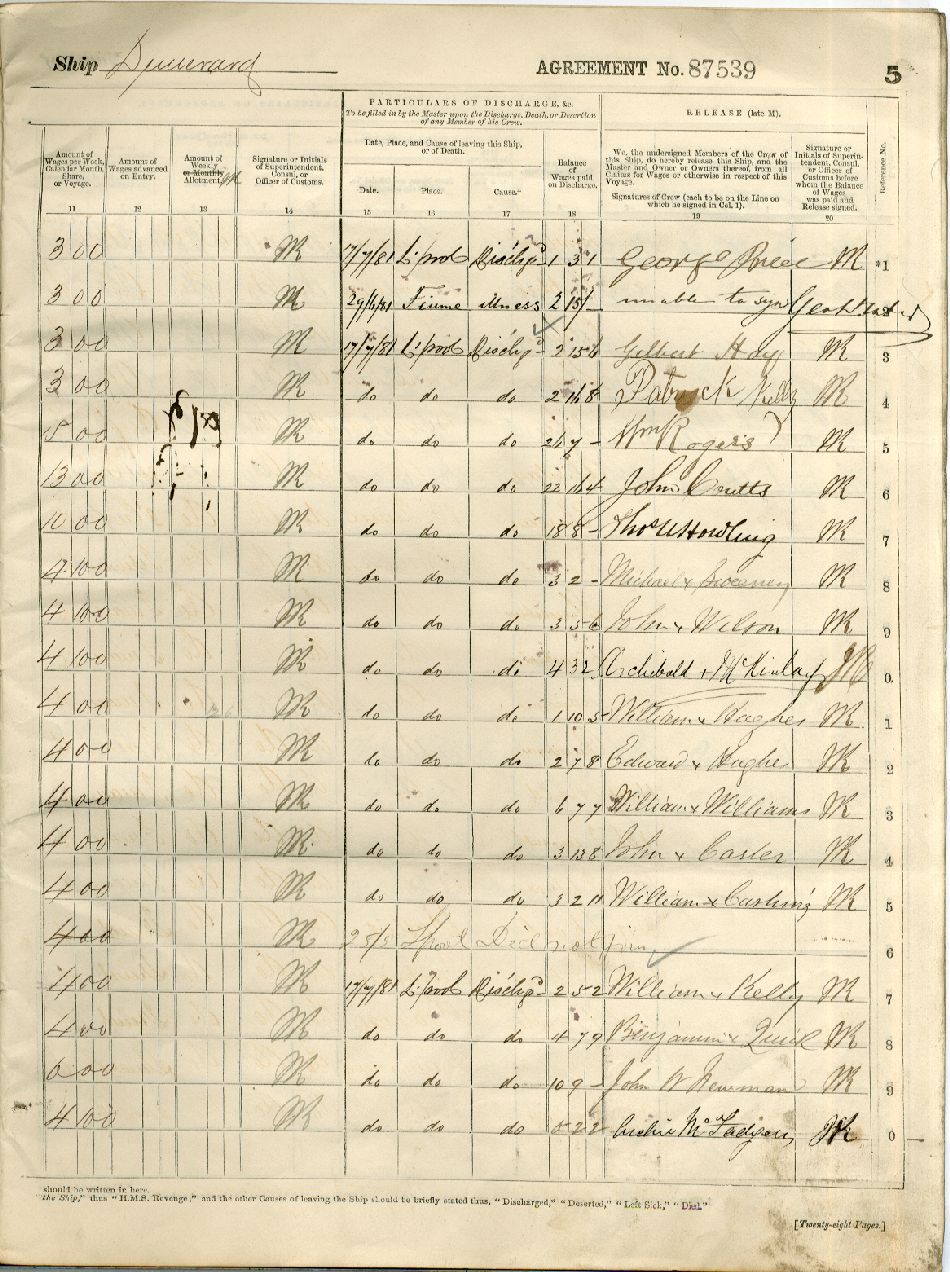 Ship
AGREEMENT No. 87539
5
PARTICULARS OF DISCHARGE, &c.
To be filled in by the Master upon the Discharge, Death, or Desertion
of any Member of his Crew.
RELEASE (late M).
Amount of
Wages per Week,
Calendar Month,
Share,
or Voyage.
Amount of
Wages advanced
on Entry.
Amount of
Weekly
or Monthly
Allotment.
Signature or Initials
of Superintendent,
Consul, or
Officer of Customs.
Date, Place, and Cause of leaving this Ship,
or of Death.
Date.
Place.
Cause.*
Balance
of
Wages paid
on Discharge.
We, the undersigned Members of the Crew of
this Ship, do hereby release this Ship, and the
Master and Owner or Owners thereof, from all
Claims for Wages or otherwise in respect of this
Voyage.
Signatures of Crew (each to be on the Line on
which he signed in Col. 1).
Signature or
Initials of Superin-
tendent, Consul,
or Officer of
Customs before
whom the Balance
of Wages
was paid and
Release signed.
Reference No.
11 12 13 14 15 16 17 18 19 20
3 0 0 17/7/81 L'pool Dischgd 1 3 1 George Price *1
3 0 0 29/6/81 Fiume illness 2 15/- unable to sign
3 0 0 17/7/81 L'pool Dischgd 2 15 6 Gilbert Hoy 3
3 0 0 do do do 2 16 8 Patrick Kelly 4
5 0 0 do do do 26 7 - Wm Rogers 5
13 0 0 do do do 22 16 4 John Coutts 6
10 0 0 do do do 18 8 - Thos Howling 7
4 10 0 do do do 3 2 - Michael x Sweeney 8
4 10 0 do do do 3 5 6 John x Wilson 9
4 10 0 do do do 4 3 2 Archibald x McKinlay 0
4 0 0 do do do 1 10 5 William x Hughes 1
4 0 0 do do do 2 7 8 Edward x Hughes 2
4 0 0 do do do 6 7 7 William x Williams 3
4 0 0 do do do 3 13 8 John x Carter 4
4 0 0 do do do 3 2 11 William x Cashing 5
4 0 0 25/5 Lpool Did not join 6
4 0 0 17/7/81 L'pool Dischgd 2 5 2 William x Kelly 7
4 0 0 do do do 4 7 9 Benjamin x Quill 8
6 0 0 do do do 10 9 - John W Newman 9
4 10 0 do do do 5 2 2 Archie McFadgen 0
should be written in here.
"the Ship," thus "H.M.S. Revenge," and the other Causes of leaving the Ship should be briefly stated thus, "Discharged," "Deserted," "Left Sick," "Died."
[Twenty-eight Pages.]